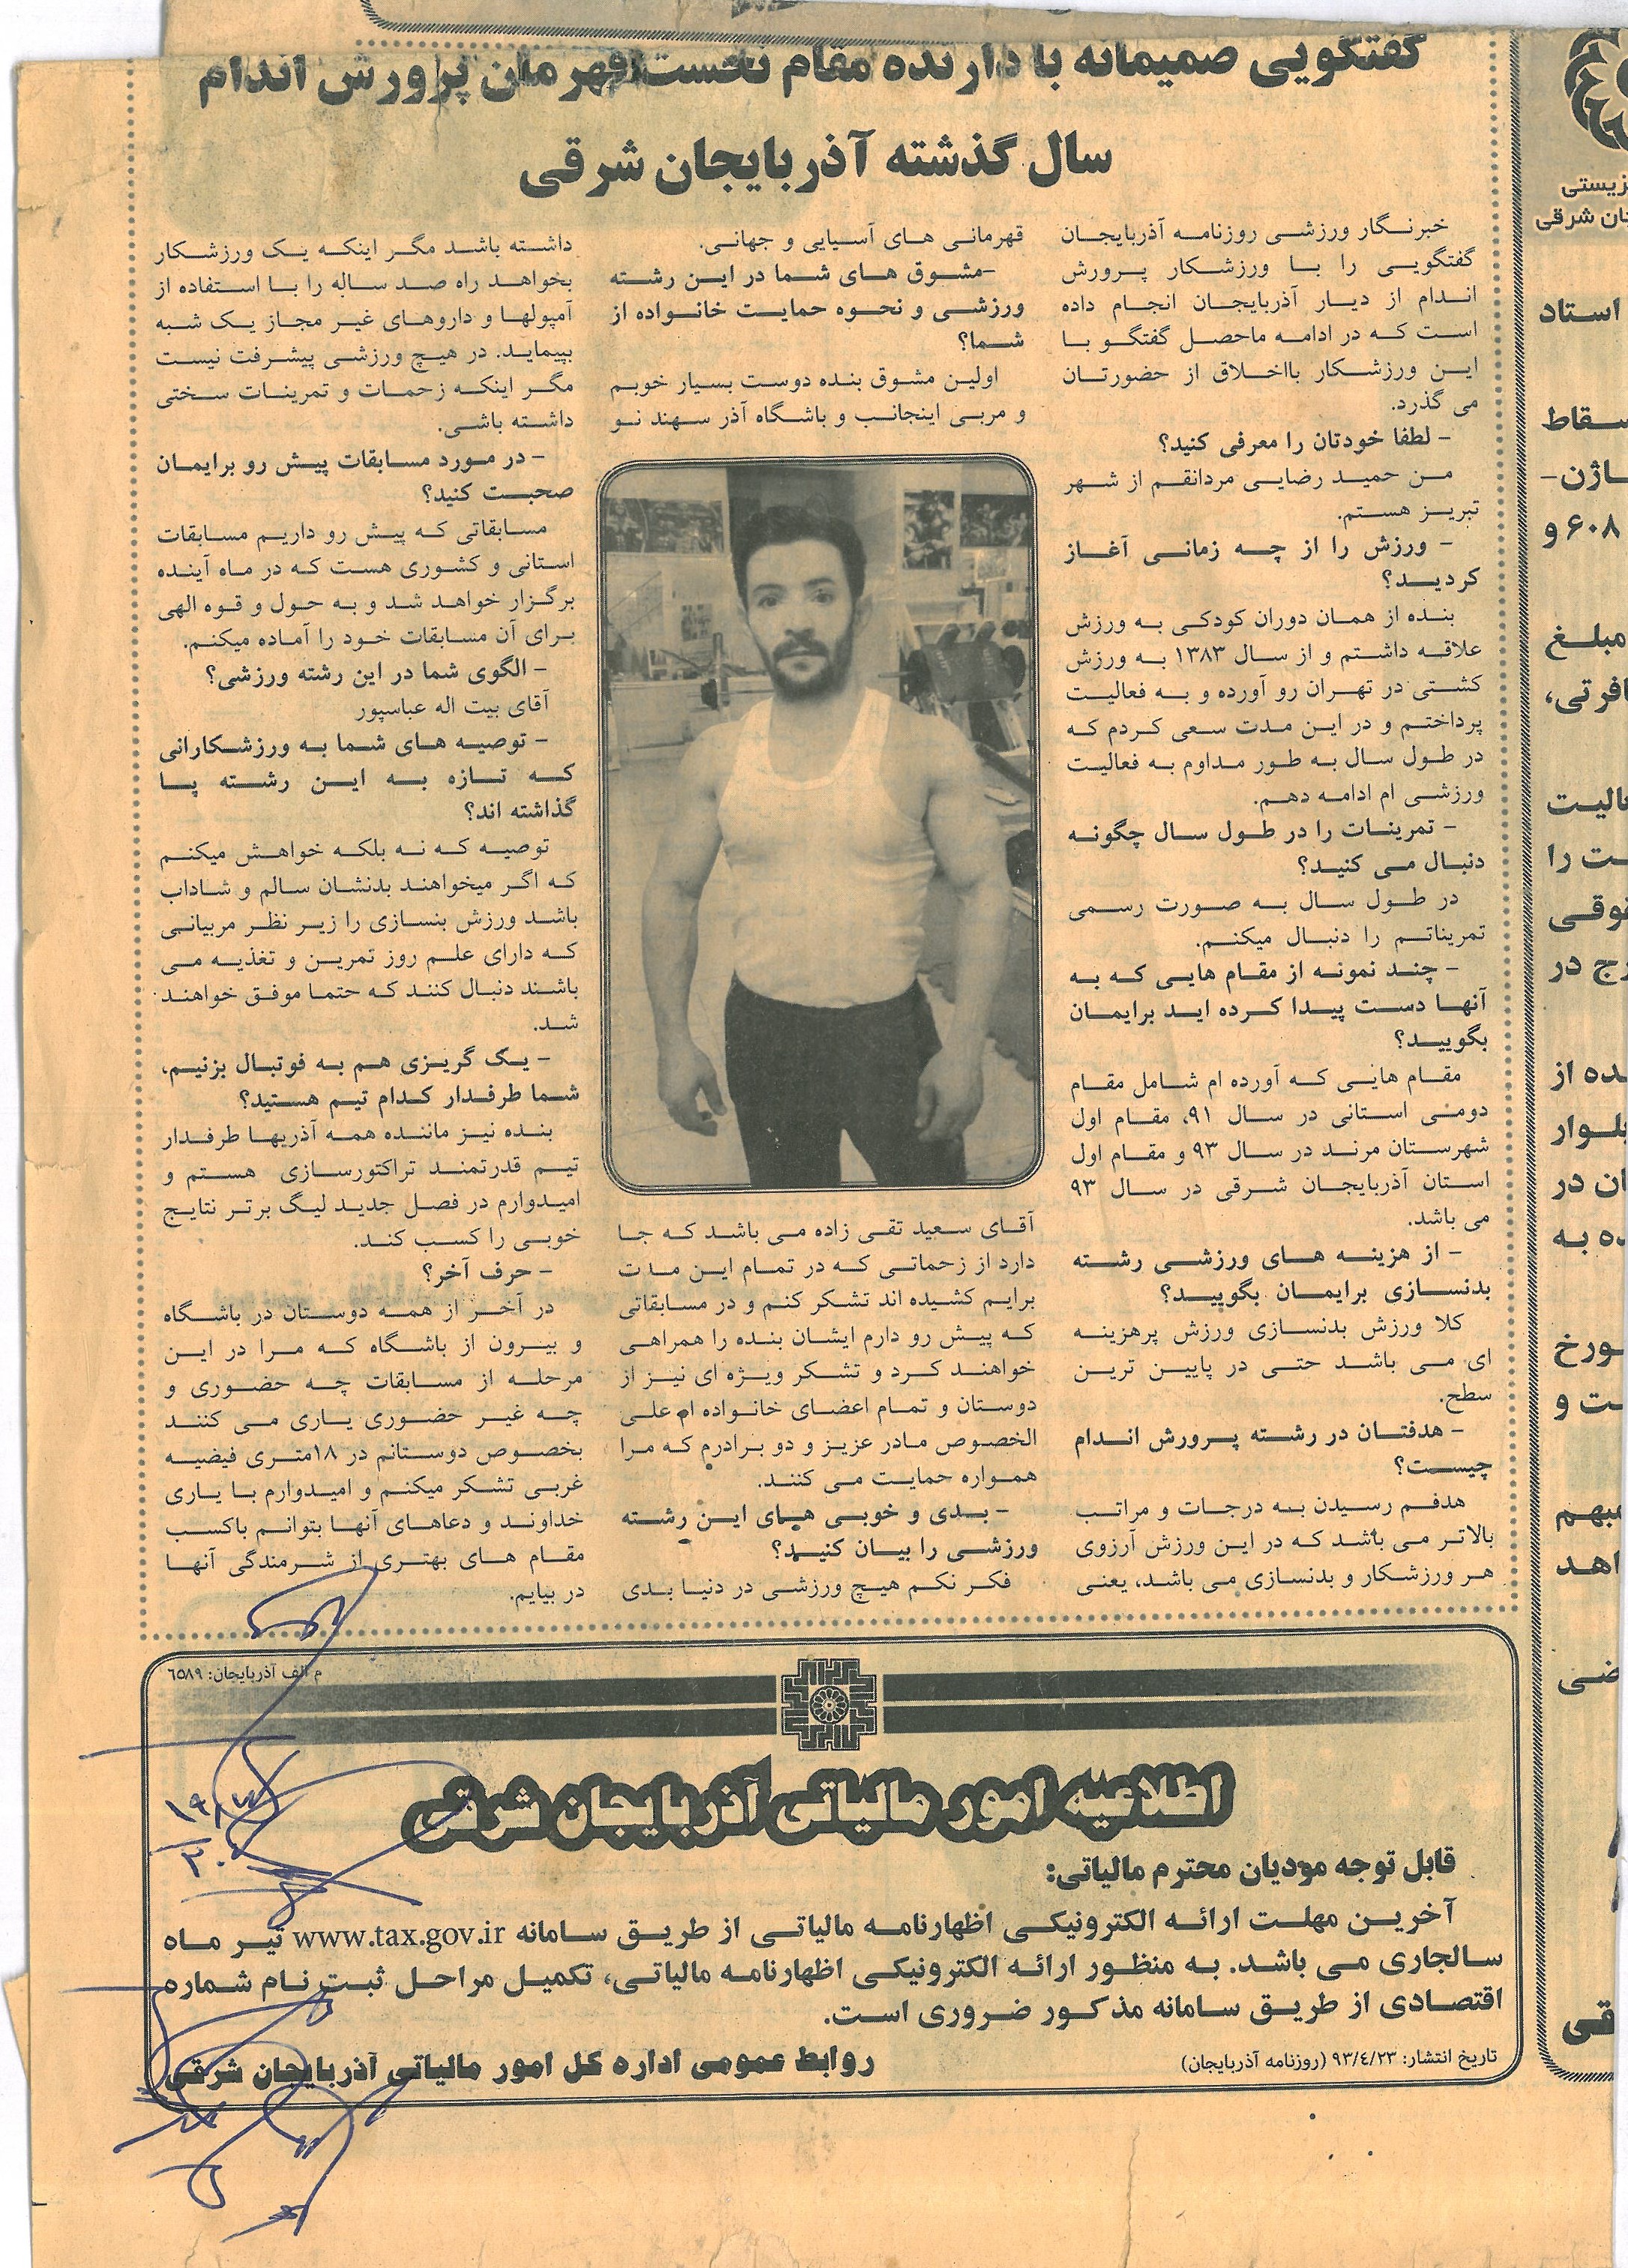 گفتگویی صمیمانه با دارنده مقام نخست قهرمان پرورش اندام
سال گذشته آذربایجان شرقی
خبرنگار ورزشی روزنامه آذربایجان
گفتگویی را با ورزشکار پرورش
اندام از دیار آذربایجان انجام داده
است که در ادامه ماحصل گفتگو با
این ورزشکار بااخلاق از حضورتان
می گذرد.
- لطفا خودتان را معرفی کنید؟
من حمید رضایی مردانقم از شهر
تبریز هستم.
- ورزش را از چه زمانی آغاز
کردید؟
بنده از همان دوران کودکی به ورزش
علاقه داشتم و از سال ۱۳۸۳ به ورزش
کشتی در تهران رو آورده و به فعالیت
پرداختم و در این مدت سعی کردم که
در طول سال به طور مداوم به فعالیت
ورزشی ام ادامه دهم.
- تمرینات را در طول سال چگونه
دنبال می کنید؟
در طول سال به صورت رسمی
تمریناتم را دنبال میکنم.
- چند نمونه از مقام هایی که به
آنها دست پیدا کرده اید برایمان
بگویید؟
مقام هایی که آورده ام شامل مقام
دومی استانی در سال ۹۱، مقام اول
شهرستان مرند در سال ۹۳ و مقام اول
استان آذربایجان شرقی در سال ۹۳
می باشد.
- از هزینه های ورزشی رشته
بدنسازی برایمان بگویید؟
کلا ورزش بدنسازی ورزش پرهزینه
ای می باشد حتی در پایین ترین
سطح.
- هدفتان در رشته پرورش اندام
چیست؟
هدفم رسیدن به درجات و مراتب
بالاتر می باشد که در این ورزش آرزوی
هر ورزشکار و بدنسازی می باشد، یعنی
قهرمانی های آسیایی و جهانی.
-مشوق های شما در این رشته
ورزشی و نحوه حمایت خانواده از
شما؟
اولین مشوق بنده دوست بسیار خوبم
و مربی اینجانب و باشگاه آذر سهند نو
آقای سعید تقی زاده می باشد که جا
دارد از زحماتی که در تمام این مدت
برایم کشیده اند تشکر کنم و در مسابقاتی
که پیش رو دارم ایشان بنده را همراهی
خواهند کرد و تشکر ویژه ای نیز از
دوستان و تمام اعضای خانواده ام علی
الخصوص مادر عزیز و دو برادرم که مرا
همواره حمایت می کنند.
- بدی و خوبی های این رشته
ورزشی را بیان کنید؟
فکر نکم هیچ ورزشی در دنیا بدی
داشته باشد مگر اینکه یک ورزشکار
بخواهد راه صد ساله را با استفاده از
آمپولها و داروهای غیر مجاز یک شبه
بپیماید. در هیچ ورزشی پیشرفت نیست
مگر اینکه زحمات و تمرینات سختی
داشته باشی.
- در مورد مسابقات پیش رو برایمان
صحبت کنید؟
مسابقاتی که پیش رو داریم مسابقات
استانی و کشوری هست که در ماه آینده
برگزار خواهد شد و به حول و قوه الهی
برای آن مسابقات خود را آماده میکنم.
- الگوی شما در این رشته ورزشی؟
آقای بیت اله عباسپور
- توصیه های شما به ورزشکارانی
که تازه به این رشته پا
گذاشته اند؟
توصیه که نه بلکه خواهش میکنم
که اگر میخواهند بدنشان سالم و شاداب
باشد ورزش بنسازی را زیر نظر مربیانی
که دارای علم روز تمرین و تغذیه می
باشند دنبال کنند که حتما موفق خواهند
شد.
- یک گریزی هم به فوتبال بزنیم،
شما طرفدار کدام تیم هستید؟
بنده نیز ماننده همه آذریها طرفدار
تیم قدرتمند تراکتورسازی هستم و
امیدوارم در فصل جدید لیگ برتر نتایج
خوبی را کسب کند.
- حرف آخر؟
در آخر از همه دوستان در باشگاه
و بیرون از باشگاه که مرا در این
مرحله از مسابقات چه حضوری و
چه غیر حضوری یاری می کنند
بخصوص دوستانم در ۱۸متری فیضیه
غربی تشکر میکنم و امیدوارم با یاری
خداوند و دعاهای آنها بتوانم باکسب
مقام های بهتری از شرمندگی آنها
در بیایم.
م الف آذربایجان: ٦٥٨٩
اطلاعیه امور مالیاتی آذربایجان شرقی
قابل توجه مودیان محترم مالیاتی:
آخرین مهلت ارائه الکترونیکی اظهارنامه مالیاتی از طریق سامانه www.tax.gov.ir تیر ماه
سالجاری می باشد. به منظور ارائه الکترونیکی اظهارنامه مالیاتی، تکمیل مراحل ثبت نام شماره
اقتصادی از طریق سامانه مذکور ضروری است.
تاریخ انتشار: ۹۳/٤/۲۳ (روزنامه آذربایجان)
روابط عمومی اداره کل امور مالیاتی آذربایجان شرقی
استاد
۶۰۸ و
مبلغ